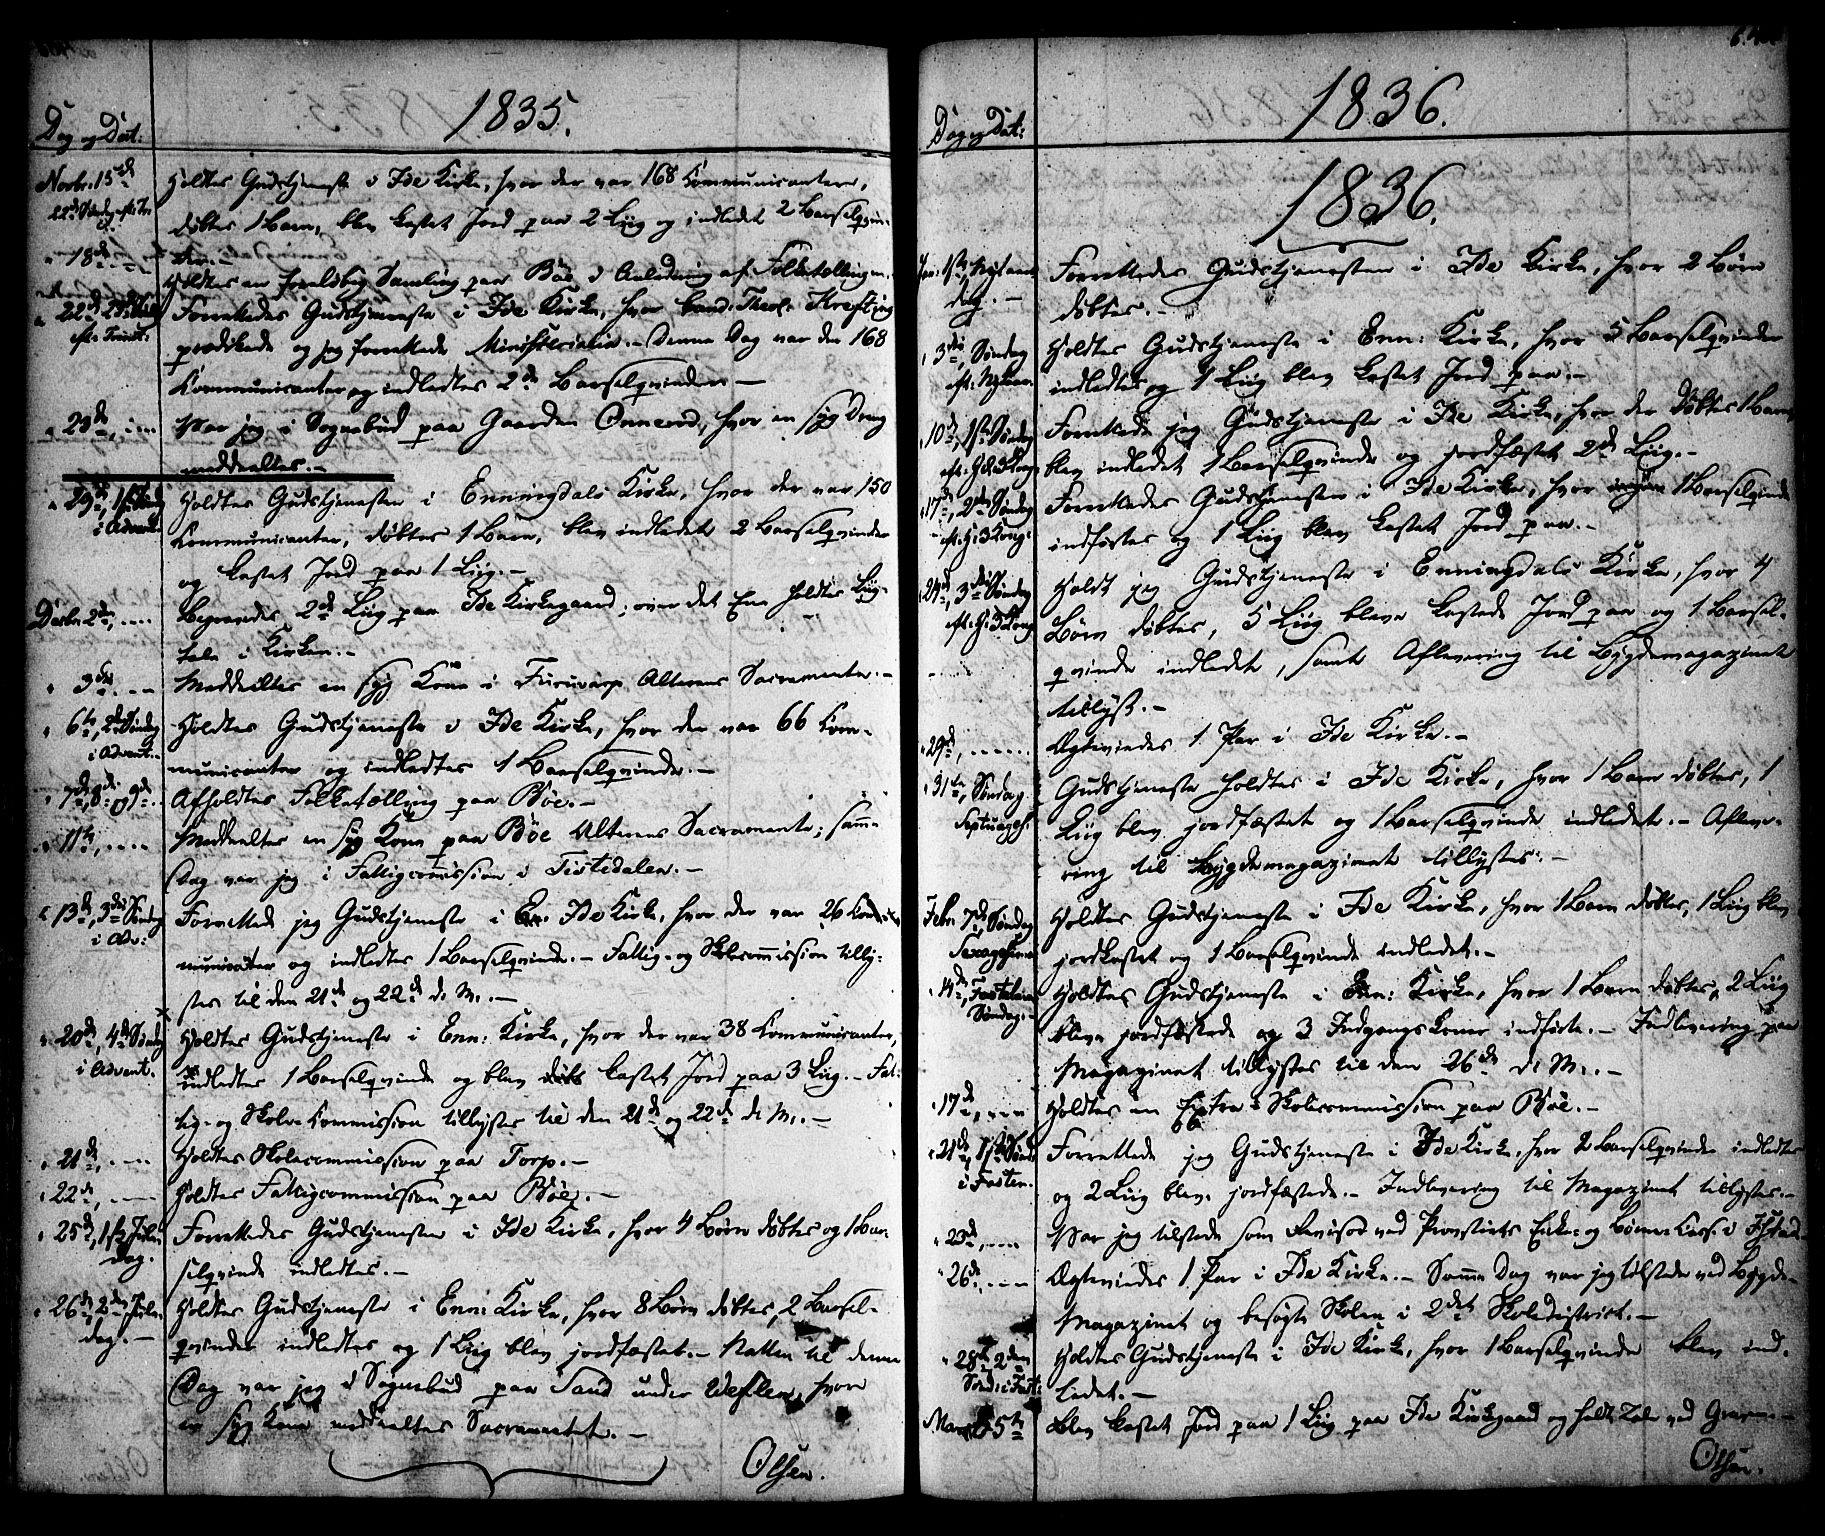 1835.
Dag og Dat:
Novbr. 15de Holdtes Gudstjeneste i Ide Kirke, hvor der var 168 Communicantere,
22de Søndag eft. Tr. døbtes 1 Barn, blev kastet Jord paa 2 Liig og indledet 2 Barselqvin-
der.-
" 18de .... Holdtes en foreløbig Samling paa Böe i Anledning af Folketællingen.
" 22de, 23de Søndag eft. Trinit: Forrettedes Gudstjeneste i Ide Kirke, hvor Cand. Theol. Krefting
prædikede og jeg forrettede Ministerialia.- Denne Dag var der 168
Kommunicanter og indledtes 2de Barselqvinder.-
" 23de, .... Var jeg i Sognebud paa Gaarden, hvor en syg Dreng
meddeeltes.-
" 29de, 1ste Søndag i Advent Holdtes Gudstjenesten i Enningdals Kirke, hvor der var 150
Kommunicanter, døbtes 1 Barn, blev indledet 2 Barselqvinder
og kastet Jord paa 1 Liig.-
Decbr. 2den, .... Begravedes 2de Liig paa Ide Kirkegaard; over det Ene holdtes Liig-
tale i Kirken.-
" 3die .... Meddeeltes en syg Kone i Alterens Sacramente.-
" 6te, 2den Søndag i Advent.- Holdtes Gudstjeneste i Ide Kirke, hvor der var 66 Kom-
municanter og indledtes 1 Barselqvinde.-
" 7de, 8de og 9de.. Afholdtes Folketælling paa Böe.-
" 11te, .... Meddeeltes en syg Kone paa Böe Alterens Sacramente; samme
Dag var jeg i Fattigcommission i Tistedalen.-
" 13de, 3die Søndag i Adv: Forrettede jeg Gudstjeneste i Ide Kirke, hvor der var 26 Kom-
municanter og indledtes 1 Barselqvinde.- Fattig- og Skolecommission tilly-
stes til den 21de og 22de d. M.-
" 20de, 4de Søndag i Advent. Holdtes Gudstjeneste i Enn: Kirke, hvor der var 38 Communicanter,
indledtes 1 Barselqvinde og blev kastet Jord paa 3 Liig.- Fat-
tig- og Skole-Commission tillystes til den 21de og 22de d. M.-
" 21de, .... Holdtes Skolecommission paa Torp.-
" 22de, .... Holdtes Fattigcommission paa Böe.-
" 25de, 1ste Juledag. Forrettedes Gudstjenesten i Ide Kirke, hvor 4 Børn døbtes og 1 Bar-
selqvinde indledtes.-
" 26de, 2den Juledag.- Holdtes Gudstjeneste i Enn: Kirke, hvor 8 Børn døbtes, 2 Barsel-
qvinder indledtes og 1 Liig blev jordfæstet.- Natten til denne
Dag var jeg i Sognebud paa Sand under, hvor
en syg Kone meddeeltes Sacramentet.-
Olsen.
1836.
Dag og Dat:
1836.
Jan: 1ste, Nytaarsdag.- Forrettedes Gudstjenesten i Ide Kirke, hvor 2 Børn
døbtes.-
" 3die, Søndag eft. Nytaar. Holdtes Gudstjeneste i Enn: Kirke, hvor 5 Barselqvinder
indledtes og 1 Liig blev kastet Jord paa.-
" 10de, 1ste Søndag eft. H. 3 Kong. Forrettede jeg Gudstjeneste i Ide Kirke, hvor der døbtes 1 Barn,
blev indledet 1 Barselqvinde og jordfæstet 2de Liig.-
" 17de, 2den Søndag eft. H. 3 Kong: Forrettedes Gudstjenesten i Ide Kirke, hvor 1 Barselqvinde
indførtes og 1 Liig blev kastet Jord paa.-
" 24de, 3die Søndag eft. H. 3 Kong Holdt jeg Gudstjeneste i Enningdals Kirke, hvor 4
Børn døbtes, 5 Liig bleve kastede Jord paa og 1 Barsel-
qvinde indledet, samt Aflevering til Bygdemagazinet
tillyst.-
" 29de, ...... Ægteviedes 1 Par i Ide Kirke.-
" 31te, Søndag Septuages. Gudstjeneste holdtes i Ide Kirke, hvor 1 Barn døbtes, 1
Liig blev jordfæstet og 1 Barselqvinde indledet.- Afleve-
ring til Bygdemagazinet tillystes.-
Febr. 7de, Søndag Sexagesima Holdtes Gudstjeneste i Ide Kirke, hvor 1 Barn døbtes, 1 Liig blev
jordkastet og 1 Barselqvinde indledet.-
" 14de, Fastelavns Søndag.- Holdtes Gudstjeneste i Enn: Kirke, hvor 1 Barn døbtes, 2 Liig
bleve jordfæstede og 3 Indgangskoner indførte.- Indlevering paa
Magazinet tillystes til den 26de d. M.-
" 17de, .... Holdtes en Extra Skolecommission paa Böe.-
" 21de, 1ste Sønd. i Fasten. Forrettede jeg Gudstjeneste i Ide Kirke, hvor 2 Barselqvinder indledtes
og 2 Liig blev jordfæstede.- Indlevering til Magazinet tillystes.-
" 23de, .... Var jeg tilstede som Revisor ved Provstiets Enke- og Børne-Casse i
" 26de .... Ægteviedes 1 Par i Ide Kirke.- Samme Dag var jeg tilstede ved Bygde-
Magazinet og besøgte Skolen i 2det Skoledistrict.-
" 28de, 2den Sønd: i Fast: Holdtes Gudstjeneste i Ide Kirke, hvor 1 Barselqvinde blev ind-
ledet.-
Marts 5te Blev kastet Jord paa 1 Liig paa Ide Kirkegaard og holdt Tale ved Graven.-
Olsen.